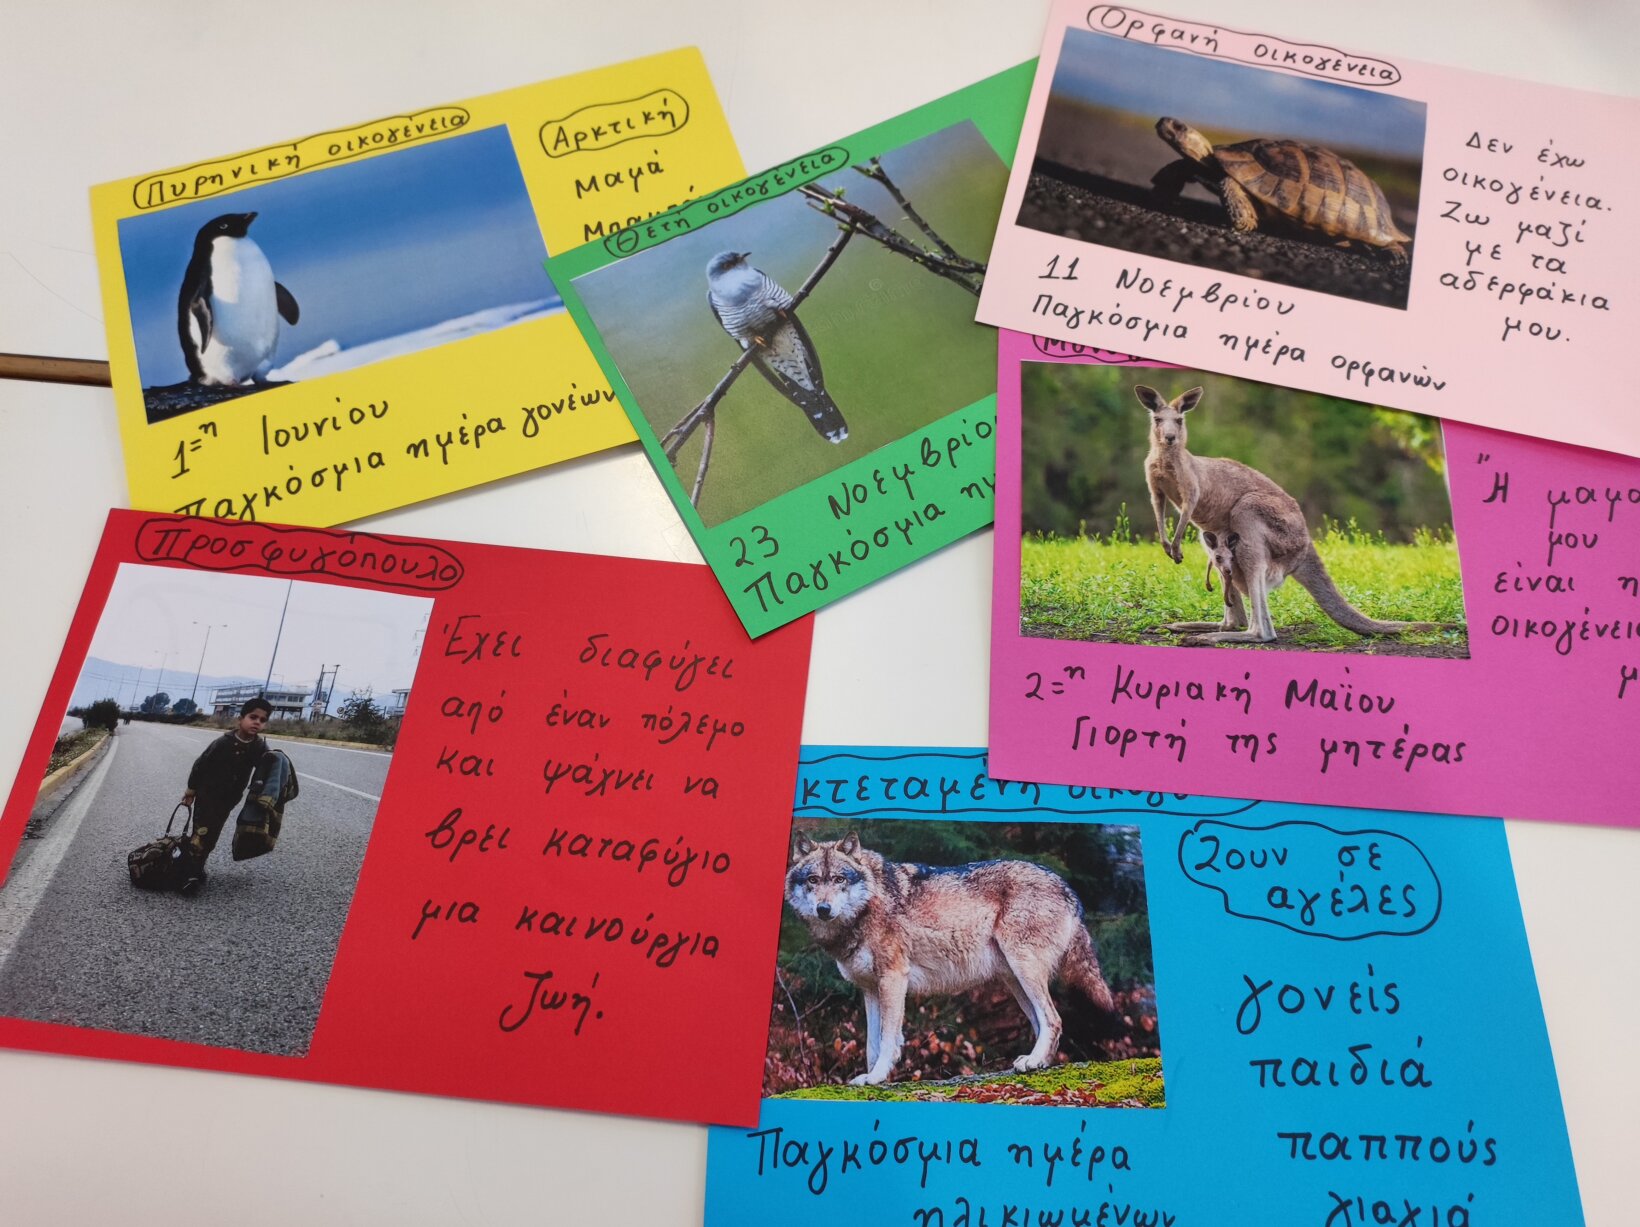 Πυρηνική οικογένεια
Αρκτική
μαμά
1=η Ιουνίου
Παγκόσμια ημέρα γονέων
Θετή οικογένεια
23 Νοεμβρίο
Παγκόσμια ημ
Ορφανή οικογένεια
Δεν έχω
οικογένεια.
Ζω μαζί
με τα
αδερφάκια
μου.
11 Νοεμβρίου
Παγκόσμια ημέρα ορφανών
"Η μαμά
μου
είναι η
οικογένεια
μ
2=η Κυριακή Μαΐου
Γιορτή της μητέρας
Προσφυγόπουλο
Έχει διαφύγει
από έναν πόλεμο
και ψάχνει να
βρει καταφύγιο
μια καινούργια
ζωή.
κτεταμένη
Ζουν σε
αγέλες
γονείς
παιδιά
παππούς
γιαγιά
Παγκόσμια ημέρα
ηλικιωμένων